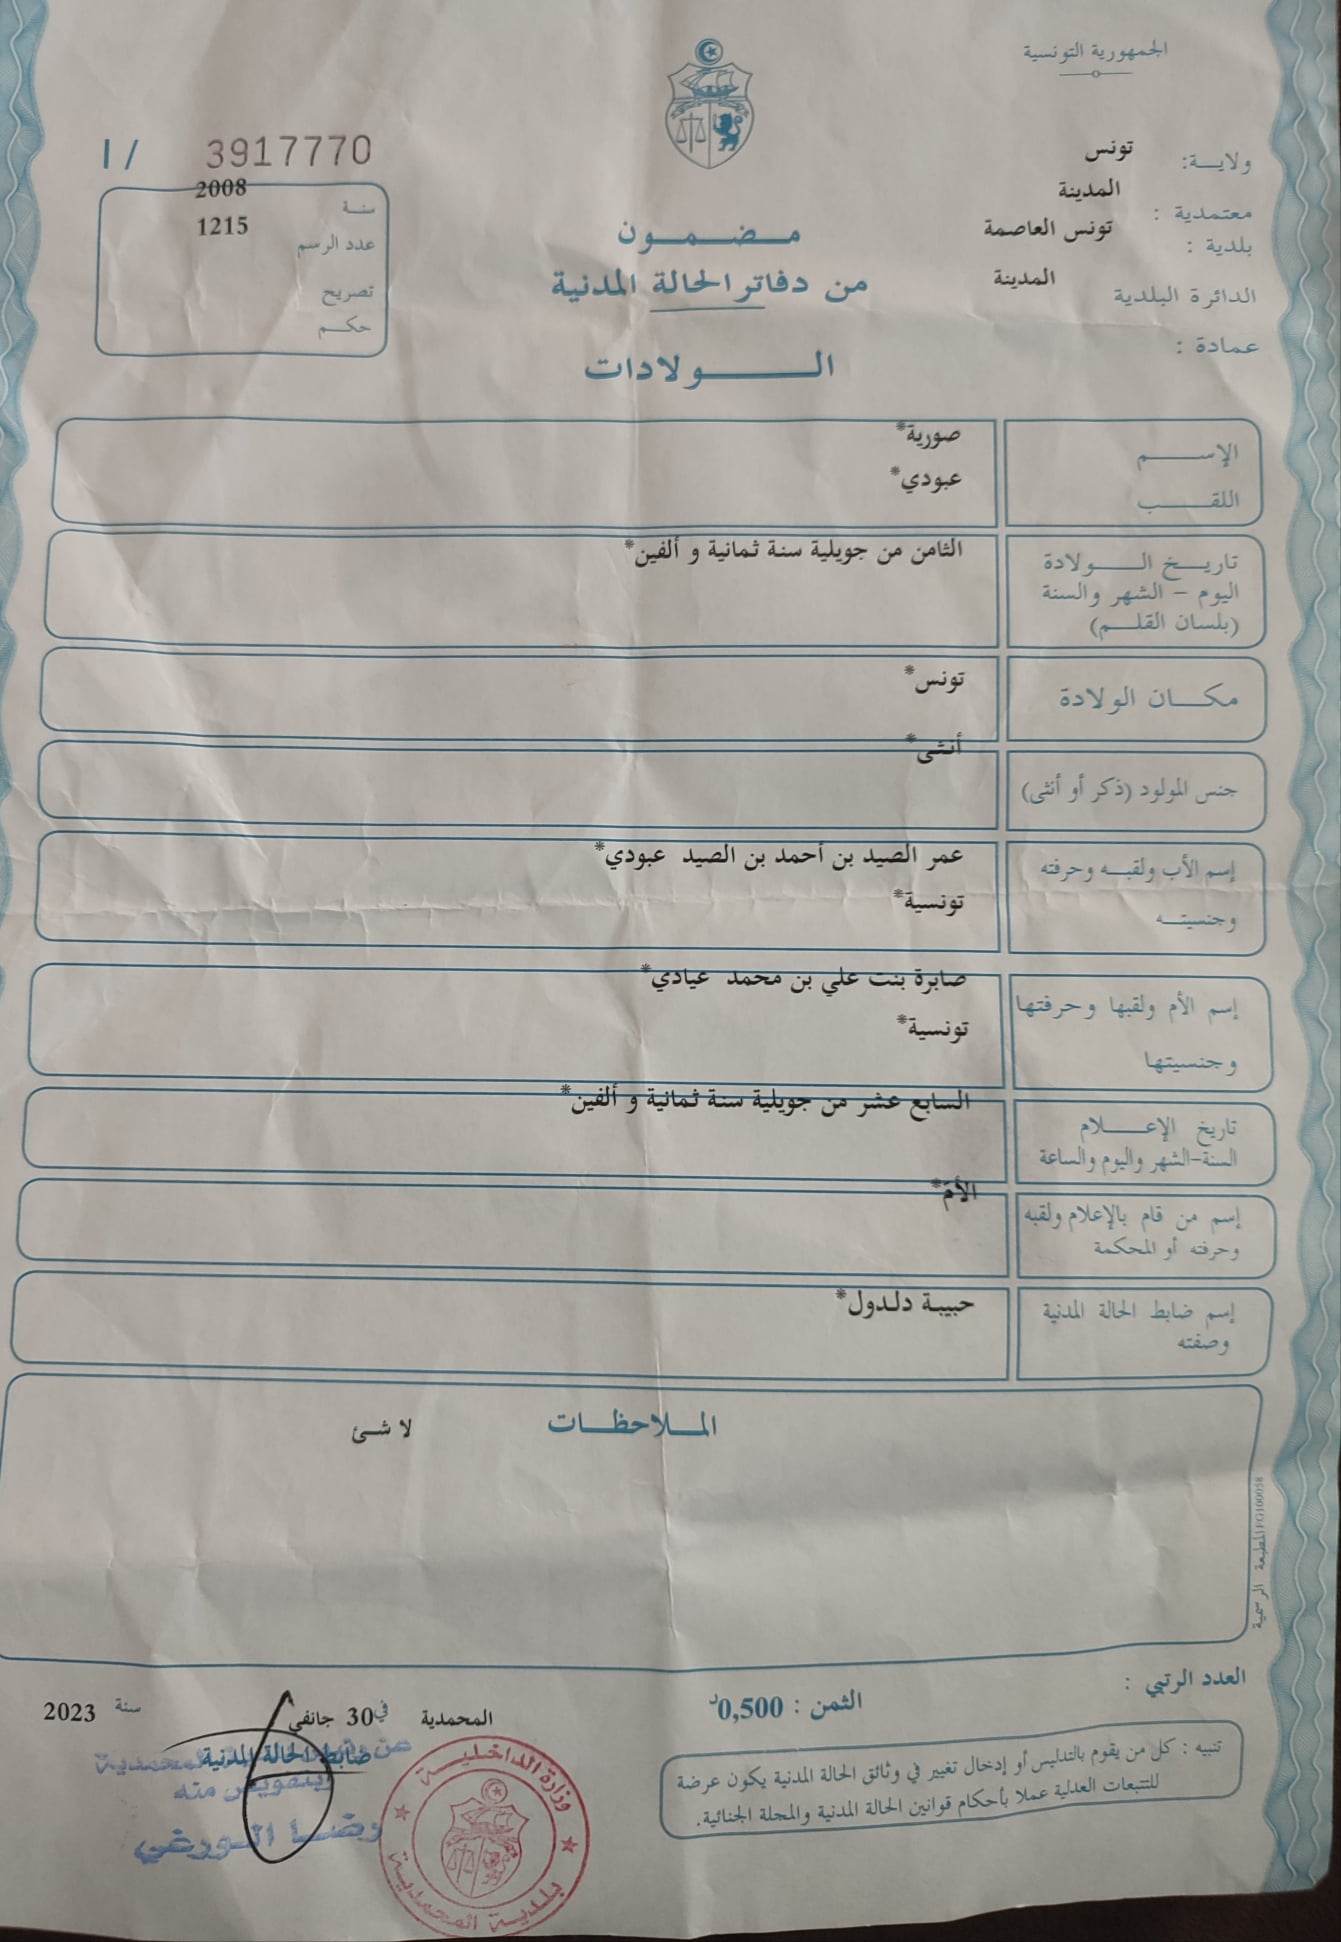 الجمهورية التونسية
ولاية: تونس
معتمدية : المدينة
بلدية : تونس العاصمة
الدائرة البلدية المدينة
عمادة :
مضمون
من دفاتر الحالة المدنية
الولادات
3917770 / I
سنة 2008
عدد الرسم 1215
تصريح
حكم
الإسم صورية*
اللقب عبودي*
تاريخ الولادة
اليوم - الشهر والسنة
(بلسان القلم)
الثامن من جويلية سنة ثمانية و ألفين*
مكان الولادة تونس*
جنس المولود (ذكر أو أنثى) أنثى*
إسم الأب ولقبه وحرفته
وجنسيته
عمر الصيد بن أحمد بن الصيد عبودي*
تونسية*
إسم الأم ولقبها وحرفتها
وجنسيتها
صابرة بنت علي بن محمد عيادي*
تونسية*
تاريخ الإعلام
السنة-الشهر واليوم والساعة
السابع عشر من جويلية سنة ثمانية و ألفين*
إسم من قام بالإعلام ولقبه
وحرفته أو المحكمة
الأم*
إسم ضابط الحالة المدنية
وصفته
حبيبة دلدول*
الملاحظات
لا شئ
المطبعة الرسمية FG100058
العدد الرتبي :
الثمن : 0,500د
تنبيه : كل من يقوم بالتدليس أو إدخال تغيير في وثائق الحالة المدنية يكون عرضة
للتتبعات العدلية عملا بأحكام قوانين الحالة المدنية والمجلة الجنائية.
المحمدية في 30 جانفي سنة 2023
ضابط الحالة المدنية
بتفويض منه
رضا الورغي
وزارة الداخلية
بلدية المحمدية